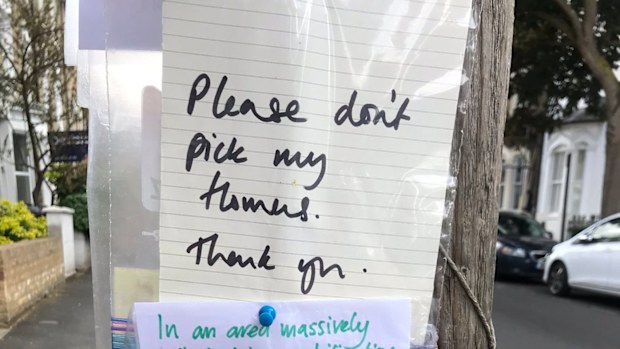 Please don't
pick my
flowers.
Thank you.
In an area massively